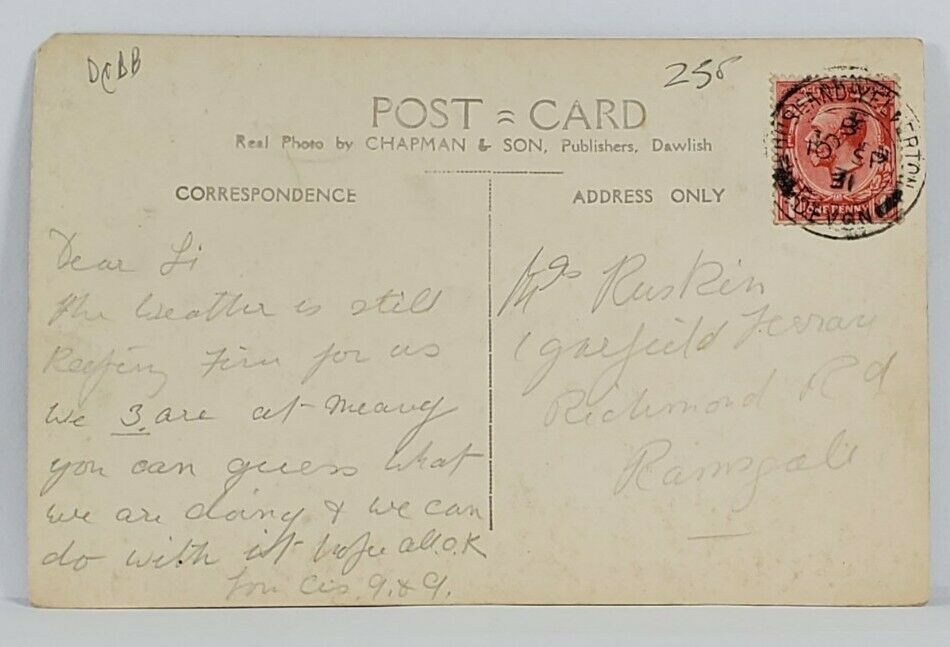 DCBB
258
POST = CARD
Real Photo by CHAPMAN & SON, Publishers, Dawlish
CORRESPONDENCE
ADDRESS ONLY
YELVERTON
SP
31
DEVON
PENNY
Dear Si
The Weather is still
Keeping Fine for us
We 3 are at Meavy
you can guess what
we are doing & we can
do with it hope all O.K
Mrs Ruskin
1 Garfield Terrace
Richmond Rd
Ramsgate